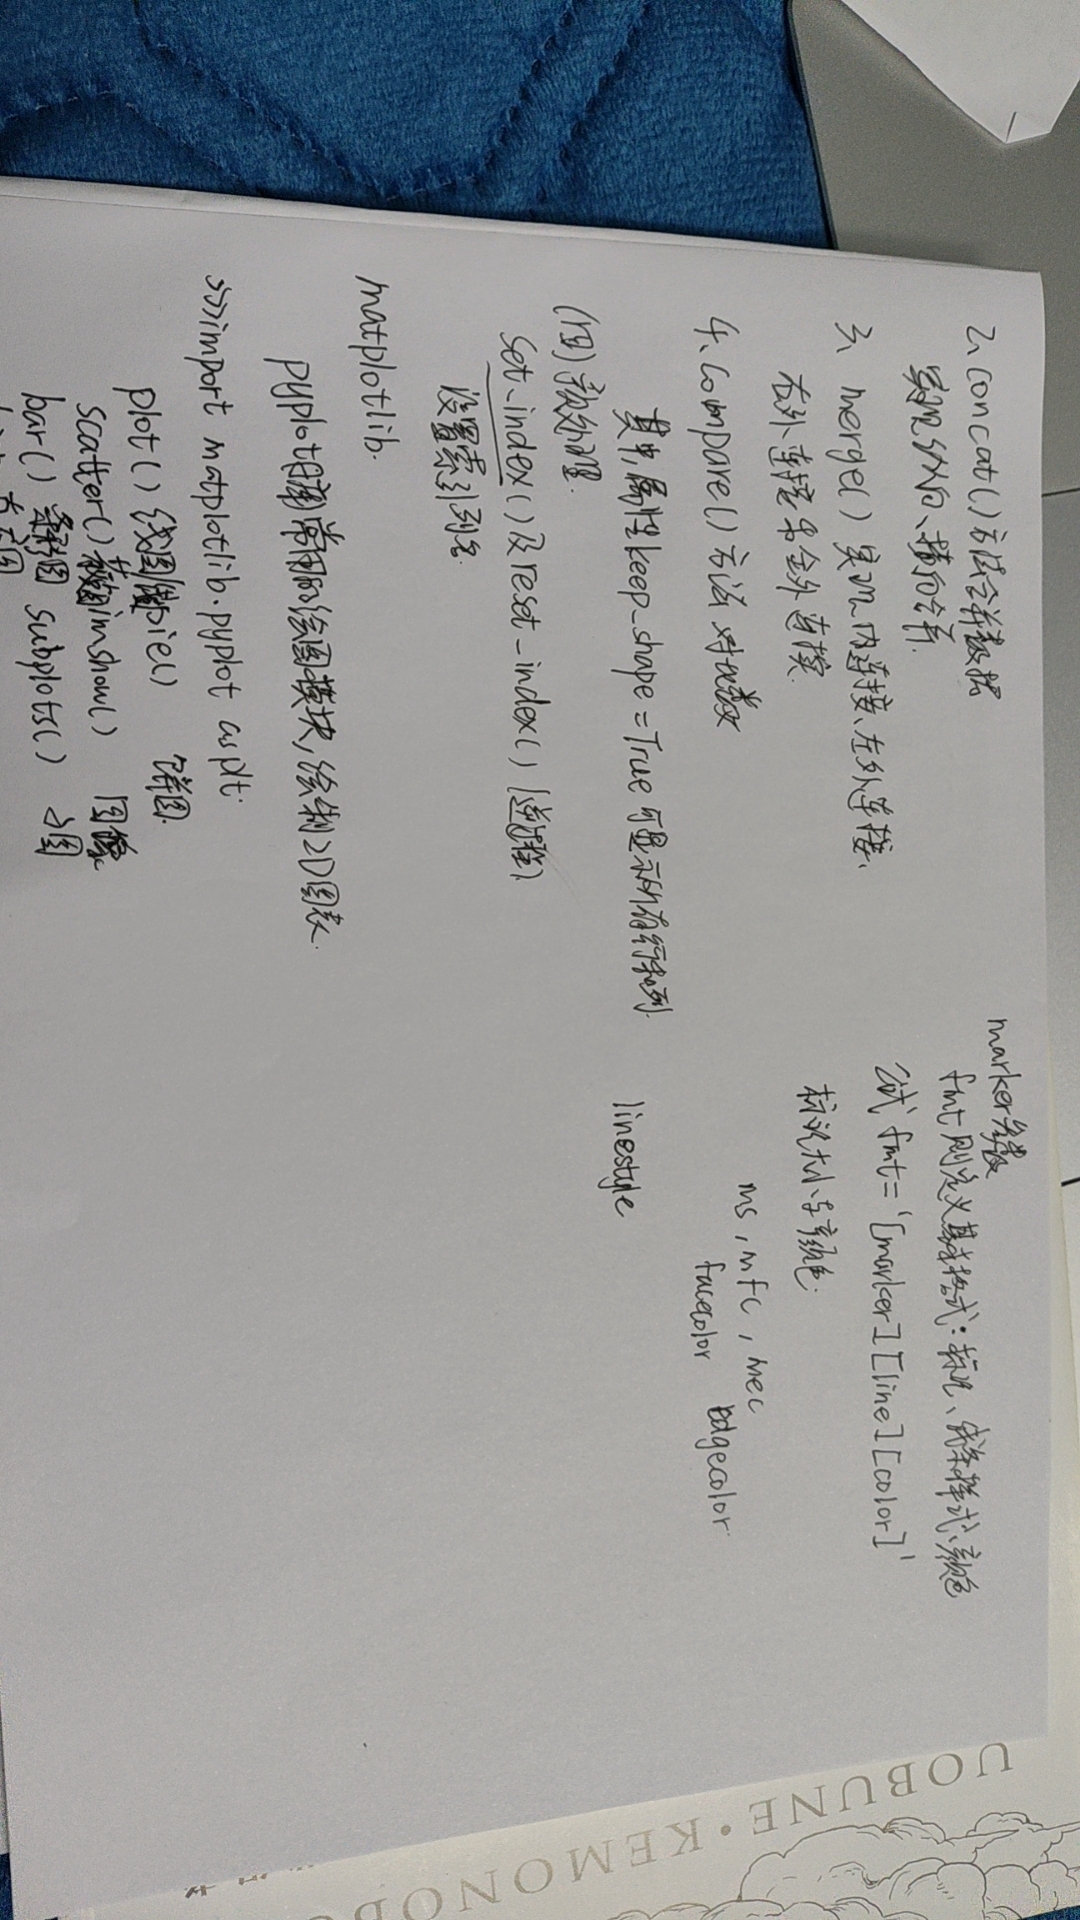 2、concat()方法合并数据
实现纵向、横向合并.
3、merge() 实现内连接、左外连接、
右外连接与全外连接.
4、compare()方法 对比数据
其中,属性keep_shape=True 可显示所有行和列.
(四)预处理.
set_index()及reset_index() (逆过程).
设置索引列名
matplotlib.
pyplot 常用的绘图模块,绘制2D图表.
>>>import matplotlib.pyplot as plt.
plot() 线图 pie() 饼图.
scatter() imshow() 图像
bar() 条形图 subplots() 子图
方图
marker参数
fmt 则定义基本格式:标记、线条样式、颜色
公式 fmt='[marker][line][color]'
标记大小与颜色.
ms, mfc, mec
facecolor edgecolor.
linestyle
UOBUNE·KEMONO